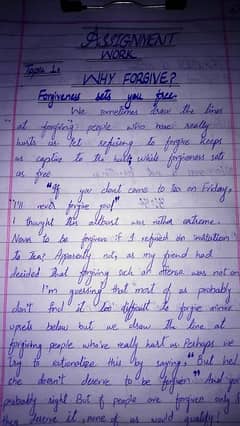 ASSIGNMENT
WORK
Topic 1:
WHY FORGIVE?
Forgiveness sets you free
We sometimes draw the line
at forgiving people who have really
hurts us yet refusing to forgive keeps
us captive to the hurt, while forgiveness sets
us free
"If you don't come to tea on Friday,
I'll never forgive you!"
I thought this outburst was rather extreme.
Never to be forgiven if I refused an invitation
to tea? Apparently not, as my friend had
decided that forgiving such an offense was not on
I'm guessing that most of us probably
don't find it too difficult to forgive minor
upsets below but we draw the line at
forgiving people who've really hurt us. Perhaps we
try to rationalise this by saying, "But he/
she doesn't deserve to be forgiven" And you
probably right. But if people are forgiven only if
they deserve it, none of us would qualify!